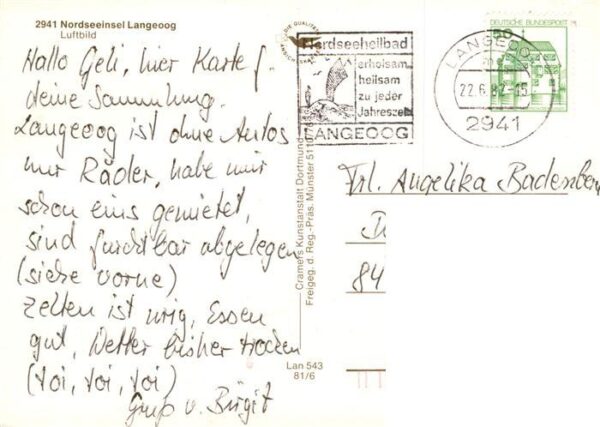 2941 Nordseeinsel Langeoog
Luftbild
Hallo Geli, hier Karte f.
deine Sammlung.
Langeoog ist ohne Autos
nur Räder, habe mir
schon eins gemietet,
sind furchtbar abgelegen
(siehe vorne)
Zelten ist urig, Essen
gut, Wetter bisher trocken
(toi, toi, toi)
Gruß v. Birgit
DIE QUALITÄTS
Cramers Kunstanstalt Dortmund
Freigeg. d. Reg.-Präs. Münster
Lan 543
81/6
Nordseeheilbad
erholsam
heilsam
zu jeder
Jahreszeit
LANGEOOG
DEUTSCHE BUNDESPOST
50
LANGEOOG
22.6.82-15
2941
Frl. Angelika Badenberg
84